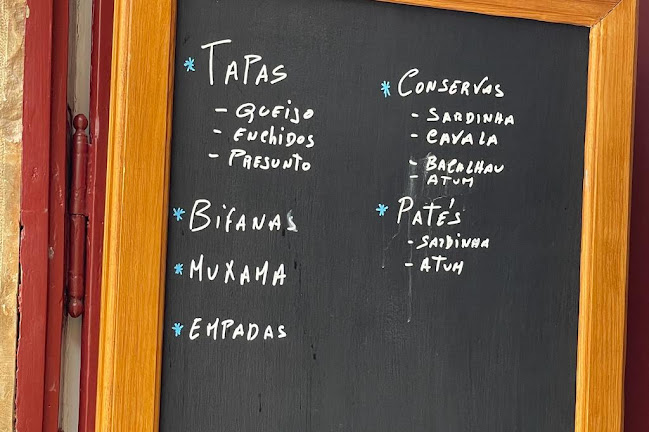 * TAPAS
- QUEIJO
- ENCHIDOS
- PRESUNTO
* BIFANAS
* MUXAMA
* EMPADAS
* CONSERVAS
- SARDINHA
- CAVALA
- BACALHAU
- ATUM
* PATÉS
- SARDINHA
- ATUM